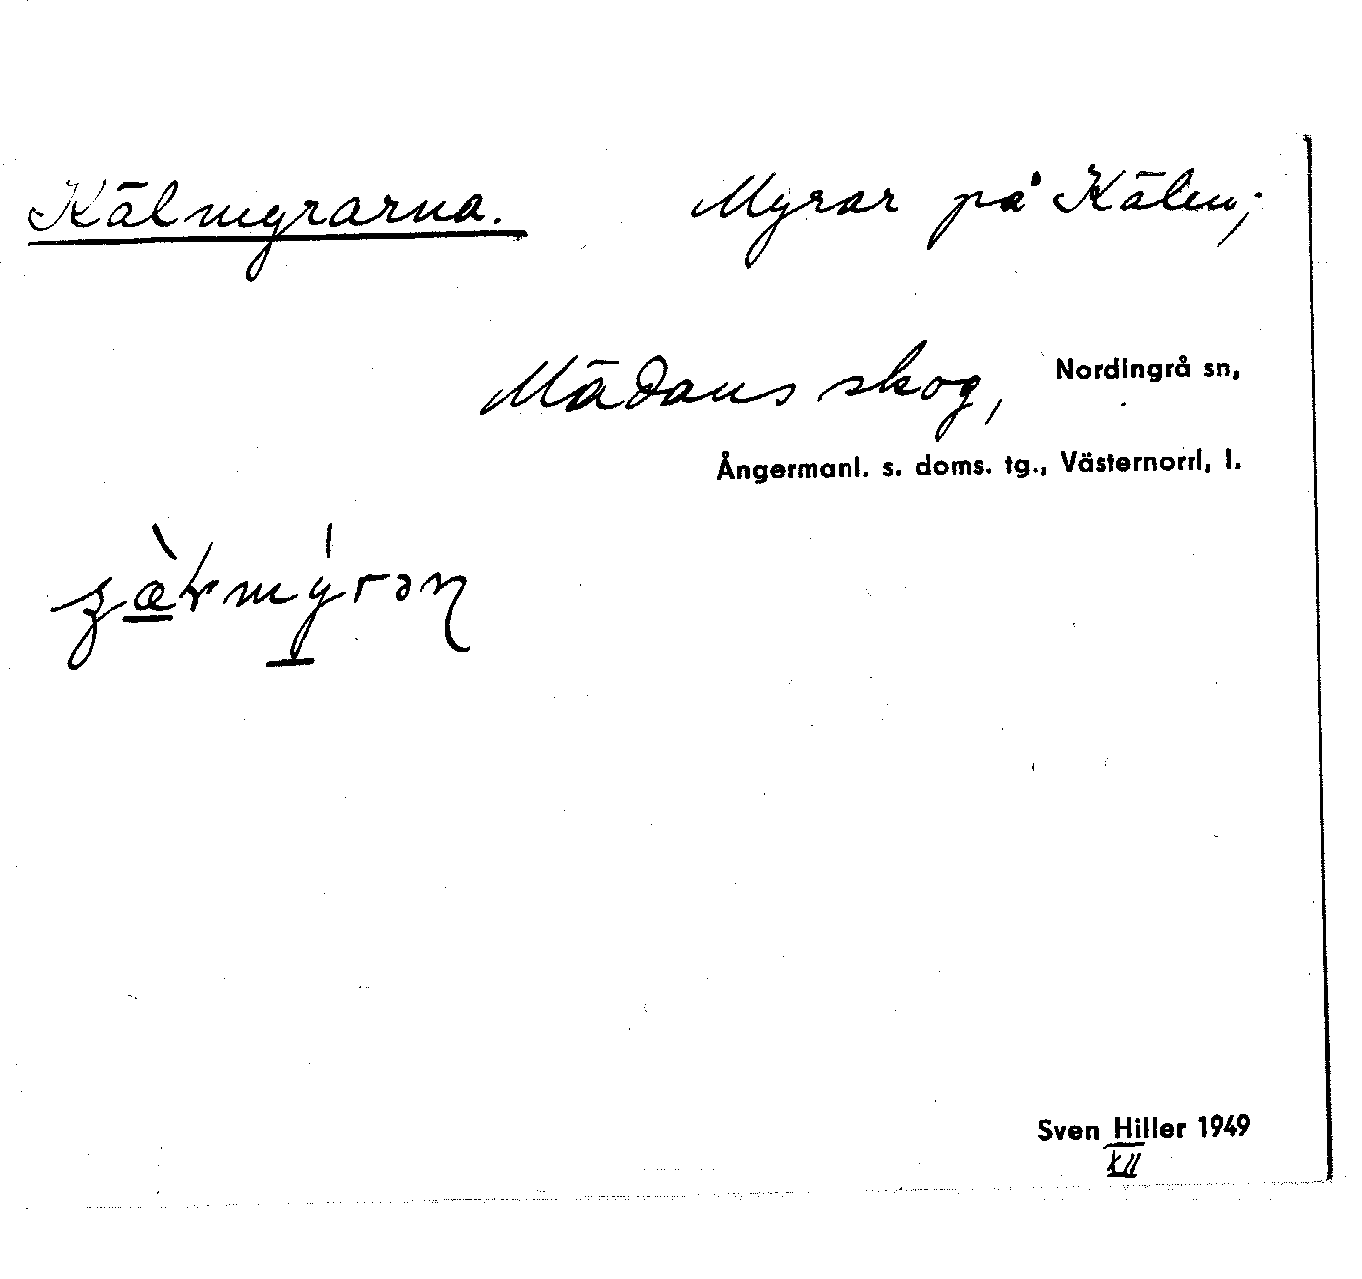 Kälmyrarna. Myrar på Kälen,
Mädans skog, Nordingrå sn,
Ångermanl. s. doms. tg., Västernorrl. l.
Sven Hiller 1949
XII